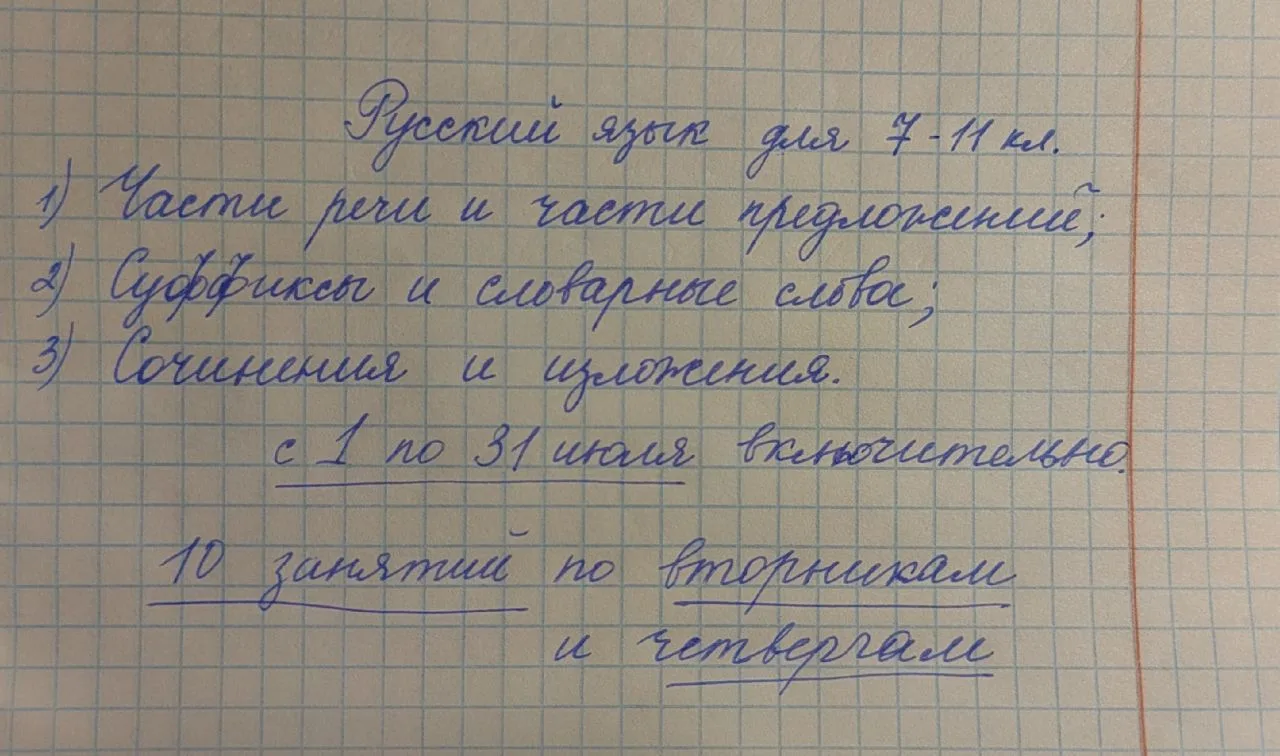 Русский язык для 7-11 кл.
1) Части речи и части предложений;
2) Суффиксы и словарные слова;
3) Сочинения и изложения.
с 1 по 31 июля включительно.
10 занятий по вторникам
и четвергам